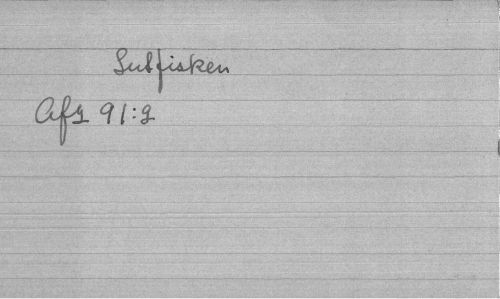 Lutfisken
Afg 91:9